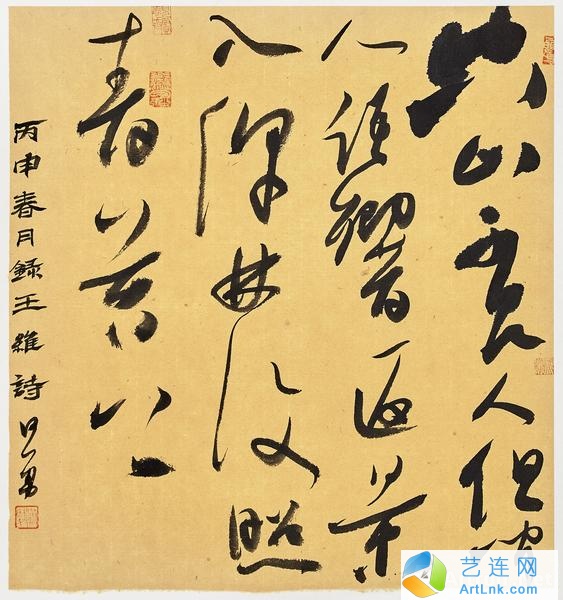 空山不見人但聞
人語響返景
入深林復照
青苔上
丙申春月錄王維詩
艺连网
ArtLnk.com